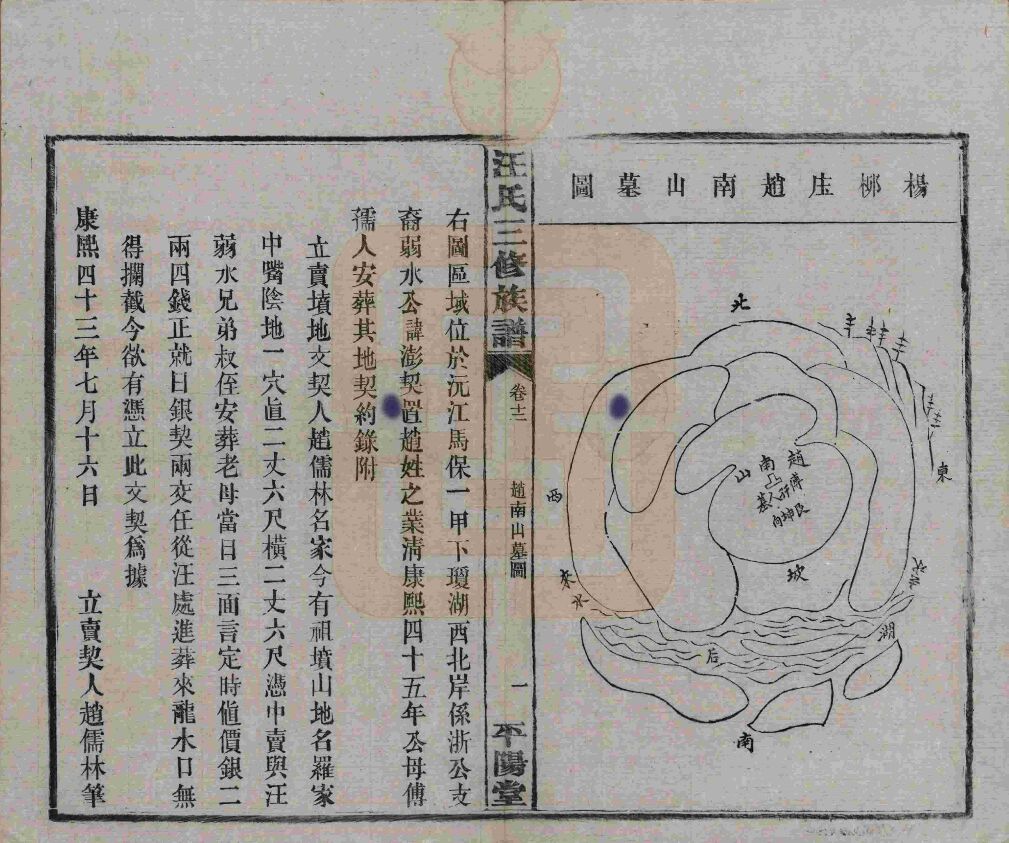 楊栁庄趙南山墓圖
北
東
西
南
趙傅孺人墓
南山
艮坤向
坡
來水
去水
湖
后
汪氏三修族譜
卷十二
趙南山墓圖
一
平陽堂
右圖區域位於沅江馬保一甲下瓊湖西北岸係浙公支
裔弱水公諱澎契置趙姓之業清康熙四十五年公母傅
孺人安葬其地契約錄附
立賣墳地文契人趙儒林名家今有祖墳山地名羅家
中嘴陰地一穴直二丈六尺橫二丈六尺憑中賣與汪
弱水兄弟叔侄安葬老母當日三面言定時值價銀二
兩四錢正就日銀契兩交任從汪處進葬來龍水口無
得攔截今欲有憑立此文契為據
康熙四十三年七月十六日　立賣契人趙儒林筆